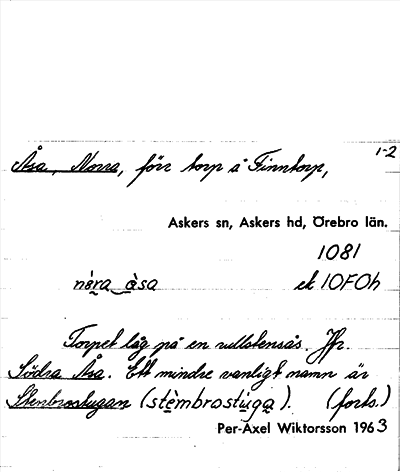 1-2
Åsa, Norra, förr torp å Finntorp,
Askers sn, Askers hd, Örebro län.
1081
nèra ‿ àsa ek 10F0h
Torpet låg på en rullstensås. Jfr.
Södra Åsa. Ett mindre vanligt namn är
Stenbrostugan (stèmbrostuga). (forts.)
Per-Axel Wiktorsson 1963